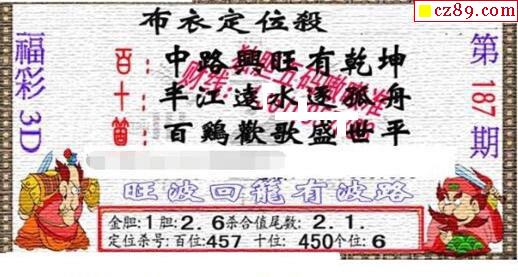 cz89.com
布衣定位殺
福彩3D
第187期
百: 中路興旺有乾坤
十: 半江遠水逐孤舟
百鷄歡歌盛世平
旺波回龍有波路
金胆:1胆:2.6杀合值尾数:2.1.
定位杀号:百位:457 十位:450个位:6